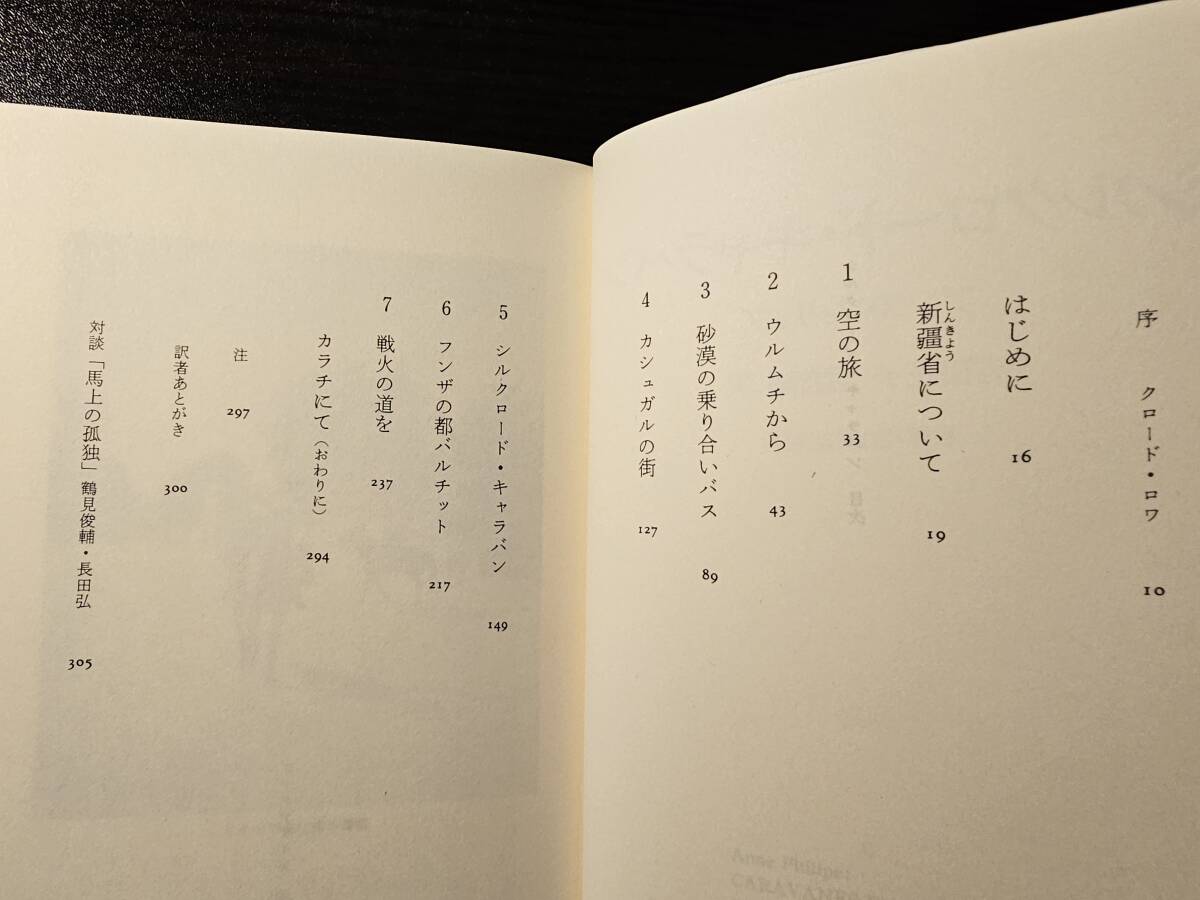 序 クロード・ロワ 10
はじめに 16
新疆省について 19
しんきょう
1 空の旅 33
2 ウルムチから 43
3 砂漠の乗り合いバス 89
4 カシュガルの街 127
5 シルクロード・キャラバン 149
6 フンザの都バルチット 217
7 戦火の道を 237
カラチにて（おわりに） 294
注 297
訳者あとがき 300
対談「馬上の孤独」 鶴見俊輔・長田弘 305